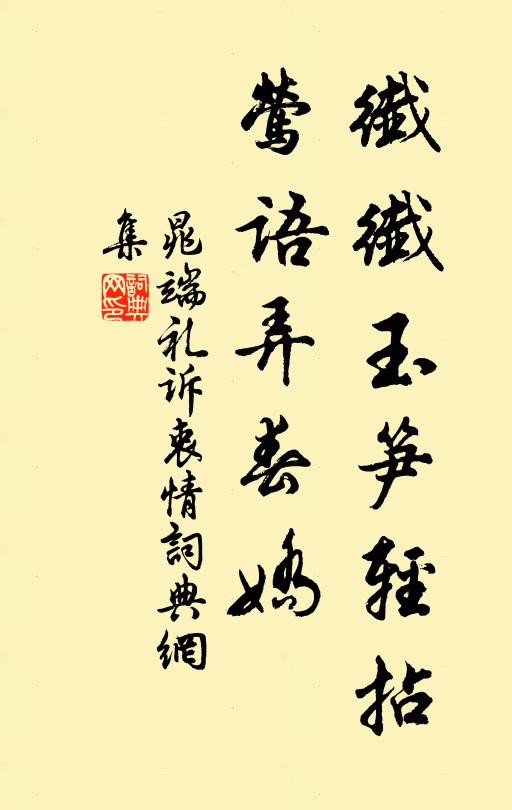 纖纖玉笋輕拈
鶯語弄春嬌
晁端礼诉衷情詞典網
集
詞典网印